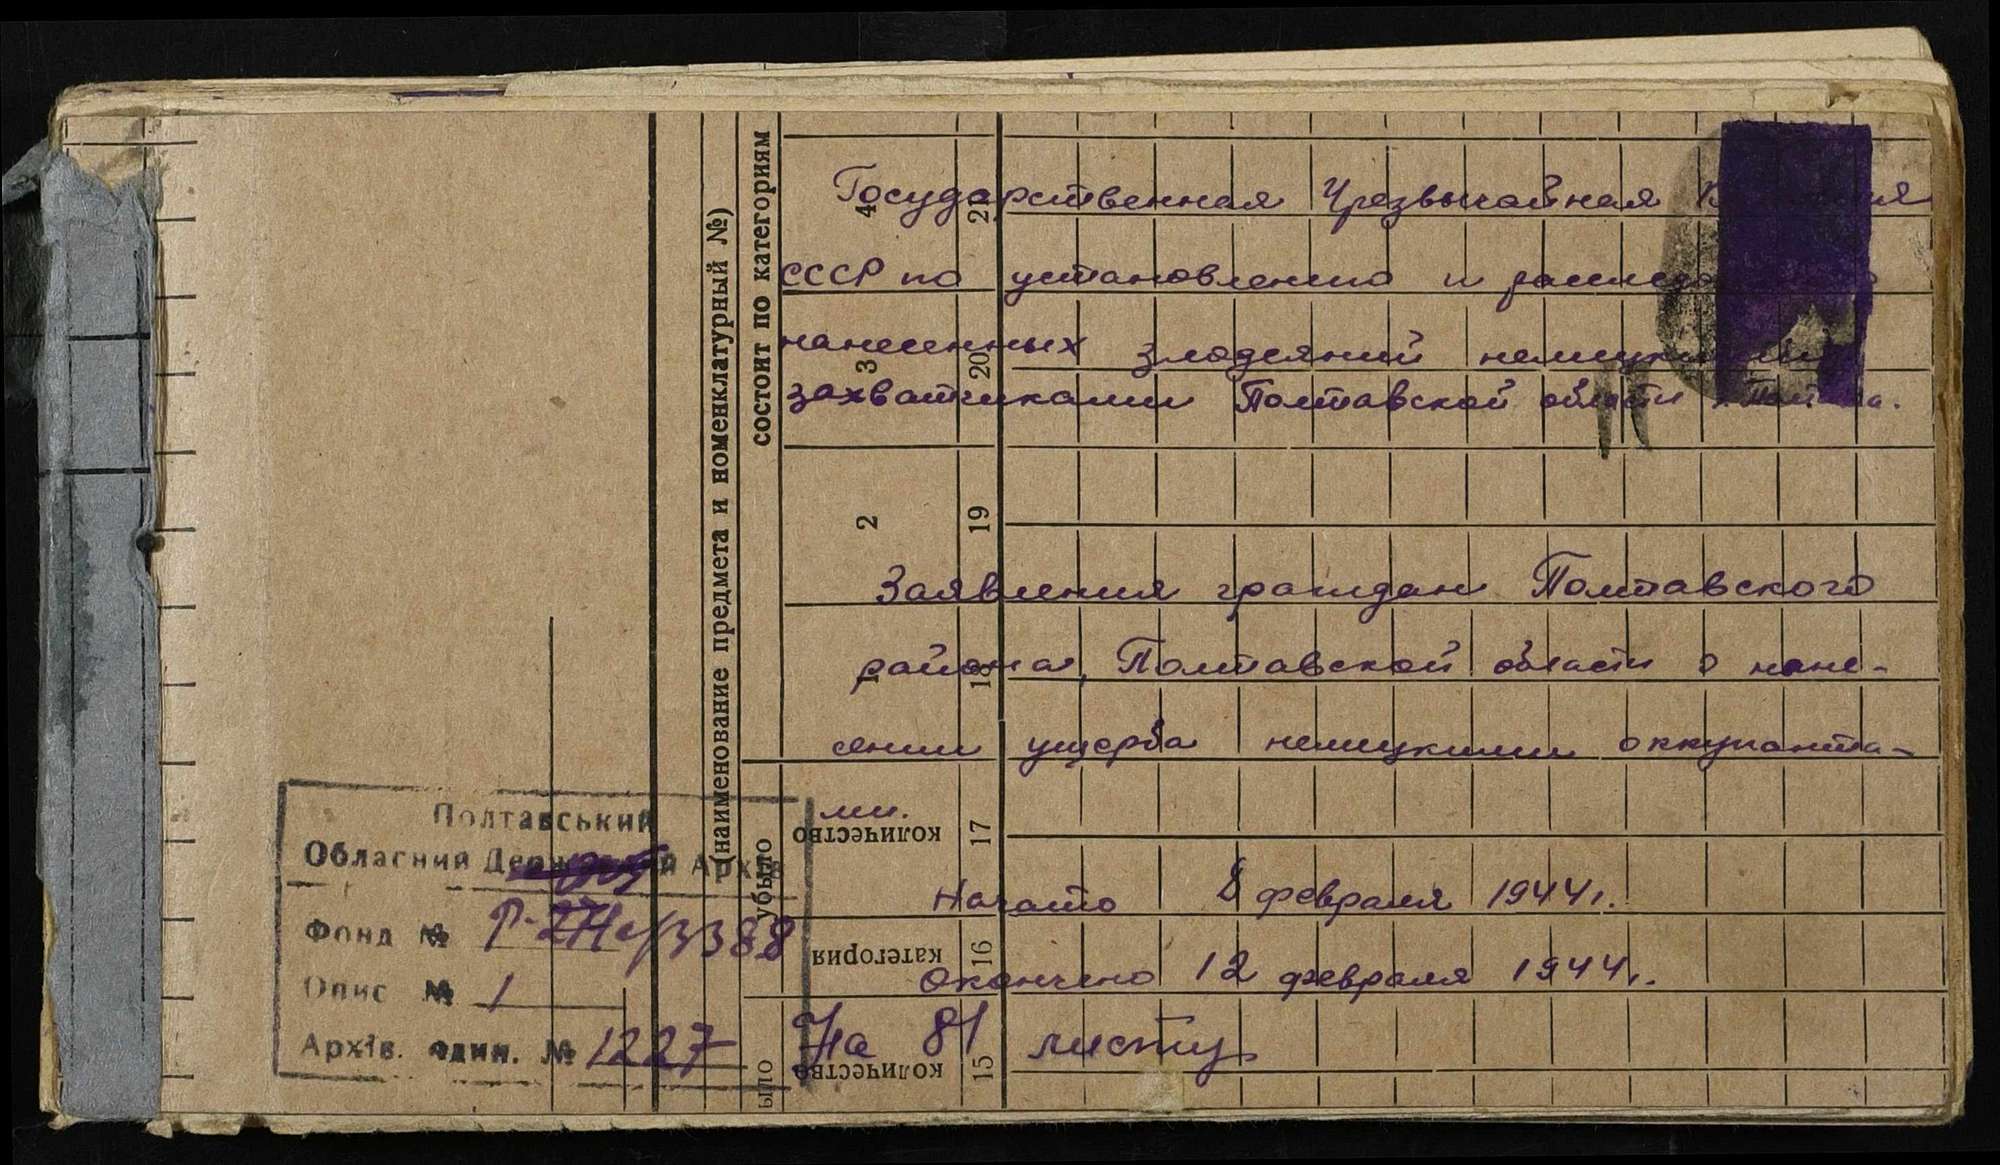 Государственная Чрезвычайная
СССР по установлению и
нанесенных злодеяний
захватчиками Полтавской области
Заявления граждан Полтавского
района, Полтавской области о нане-
сении ущерба немецкими оккупанта-
ми.
Начато 8 февраля 1944 г.
Окончено 12 февраля 1944 г.
На 81 листу
Полтавський
Обласний Державний Архів
Фонд № Р-3388
Опис № 1
Архів. один. № 1227
(наименование предмета и номенклатурный №)
состоит по категориям
4 21
3 20
2 19
1 18
убыло
количество 17
категория 16
количество 15